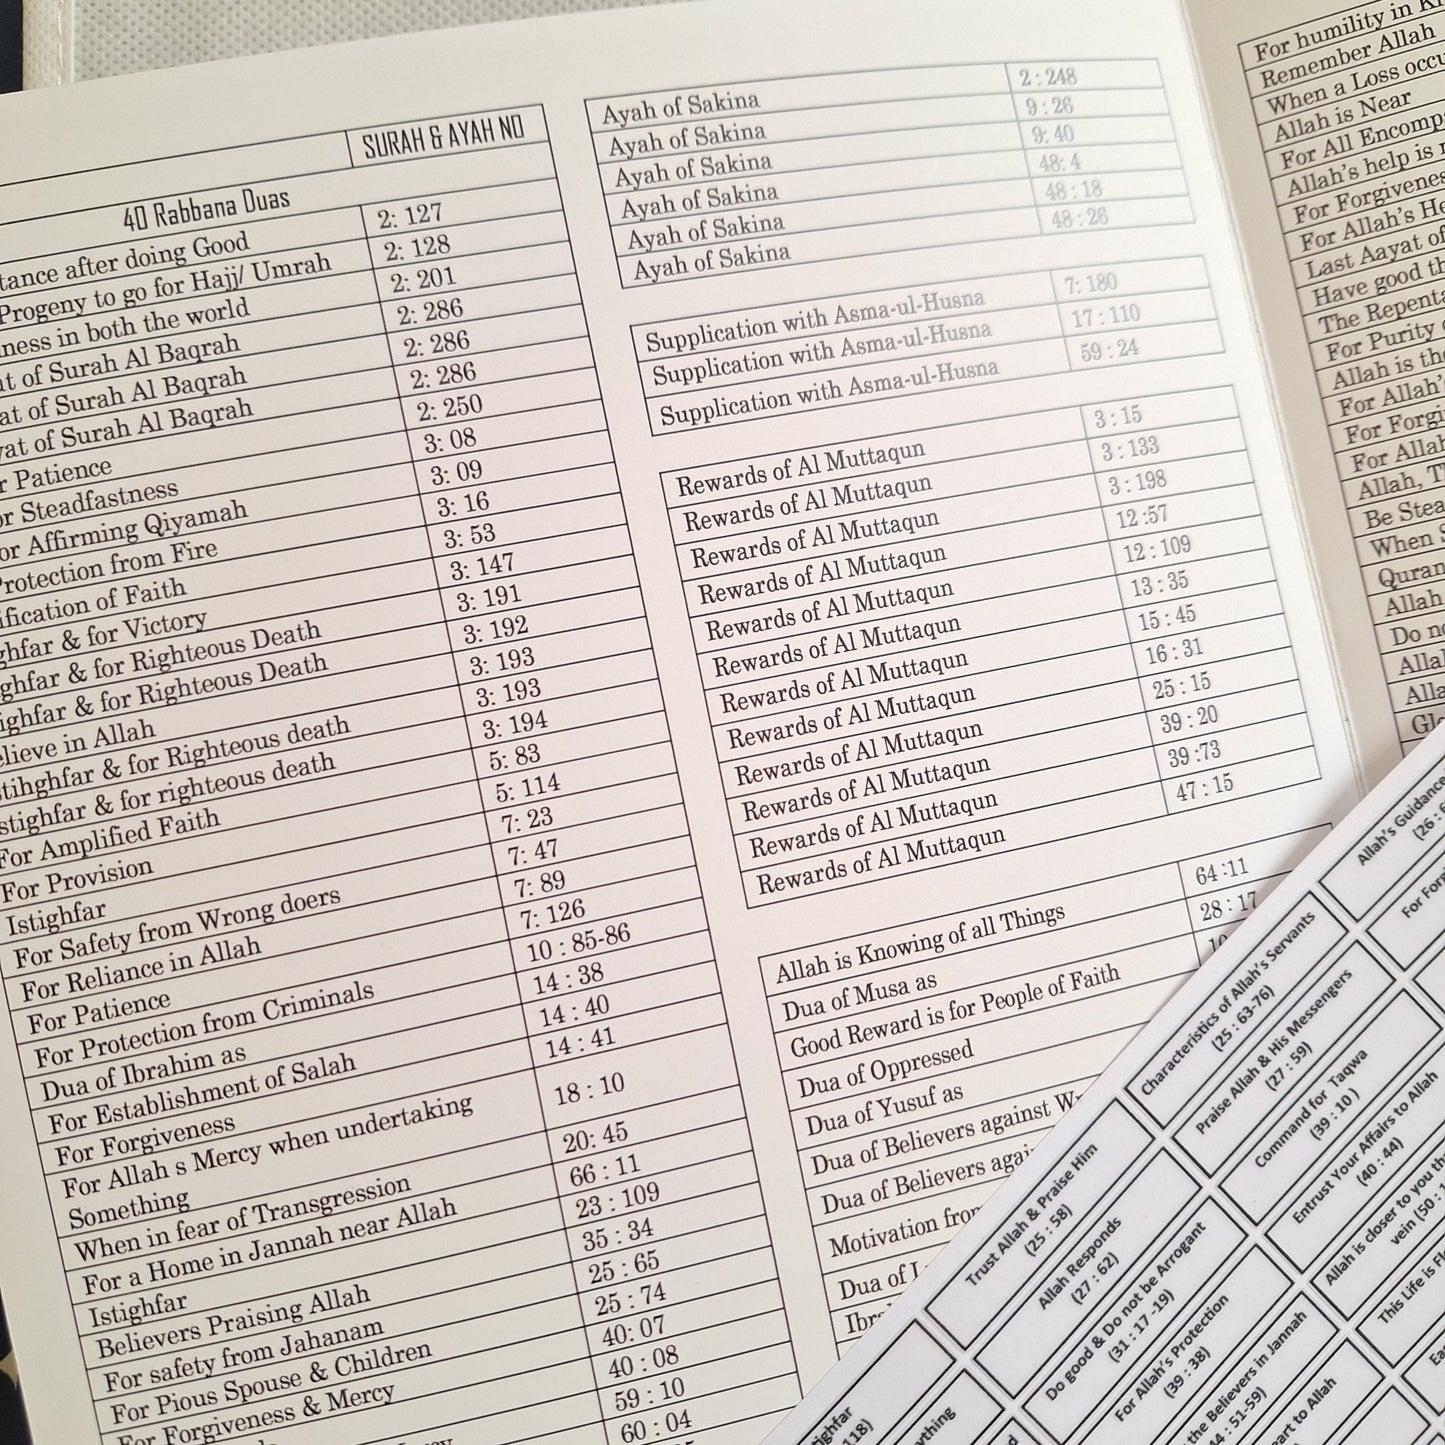 SURAH & AYAH NO
40 Rabbana Duas
after doing Good 2: 127
Progeny to go for Hajj/ Umrah 2: 128
in both the world 2: 201
of Surah Al Baqrah 2: 286
of Surah Al Baqrah 2: 286
of Surah Al Baqrah 2: 286
Patience 2: 250
Steadfastness 3: 08
Affirming Qiyamah 3: 09
Protection from Fire 3: 16
of Faith 3: 53
& for Victory 3: 147
& for Righteous Death 3: 191
& for Righteous Death 3: 192
in Allah 3: 193
& for Righteous death 3: 193
& for righteous death 3: 194
For Amplified Faith 5: 83
For Provision 5: 114
Istighfar 7: 23
For Safety from Wrong doers 7: 47
For Reliance in Allah 7: 89
For Patience 7: 126
For Protection from Criminals 10 : 85-86
Dua of Ibrahim as 14 : 38
For Establishment of Salah 14 : 40
For Forgiveness 14 : 41
For Allah s Mercy when undertaking
Something 18 : 10
When in fear of Transgression 20: 45
For a Home in Jannah near Allah 66 : 11
Istighfar 23 : 109
Believers Praising Allah 35 : 34
For safety from Jahanam 25 : 65
For Pious Spouse & Children 25 : 74
For Forgiveness & Mercy 40: 07
40 : 08
59 : 10
60 : 04
Ayah of Sakina 2 : 248
Ayah of Sakina 9 : 26
Ayah of Sakina 9: 40
Ayah of Sakina 48: 4
Ayah of Sakina 48 : 18
Ayah of Sakina 48 : 26
Supplication with Asma-ul-Husna 7: 180
Supplication with Asma-ul-Husna 17 : 110
Supplication with Asma-ul-Husna 59 : 24
Rewards of Al Muttaqun 3 : 15
Rewards of Al Muttaqun 3 : 133
Rewards of Al Muttaqun 3 : 198
Rewards of Al Muttaqun 12 :57
Rewards of Al Muttaqun 12 : 109
Rewards of Al Muttaqun 13 : 35
Rewards of Al Muttaqun 15 : 45
Rewards of Al Muttaqun 16 : 31
Rewards of Al Muttaqun 25 : 15
Rewards of Al Muttaqun 39 : 20
Rewards of Al Muttaqun 39 :73
Rewards of Al Muttaqun 47 : 15
Allah is Knowing of all Things 64 :11
Dua of Musa as 28 : 17
Good Reward is for People of Faith
Dua of Oppressed
Dua of Yusuf as
Dua of Believers against
Dua of Believers
Motivation from
Dua of
For humility in
Remember Allah
When a Loss
Allah is Near
For All
Allah's help is
For
For Allah's
Last Aayat of
Have good
The
For Purity
Allah is
For
For
For Allah
Allah,
Be
When
Quran
Allah
Do
Allah's Guidance
Characteristics of Allah's Servants
(25 : 63-76)
Praise Allah & His Messengers
(27 : 59)
Command for Taqwa
(39 : 10 )
Entrust Your Affairs to Allah
(40 : 44)
Allah is closer to you
vein (50 :
This Life is
Trust Allah & Praise Him
(25 : 58)
Allah Responds
(27 : 62)
Do good & Do not be Arrogant
(31 : 17 -19)
For Allah's Protection
(39 : 38)
the Believers in Jannah
51-59)
to Allah
118)